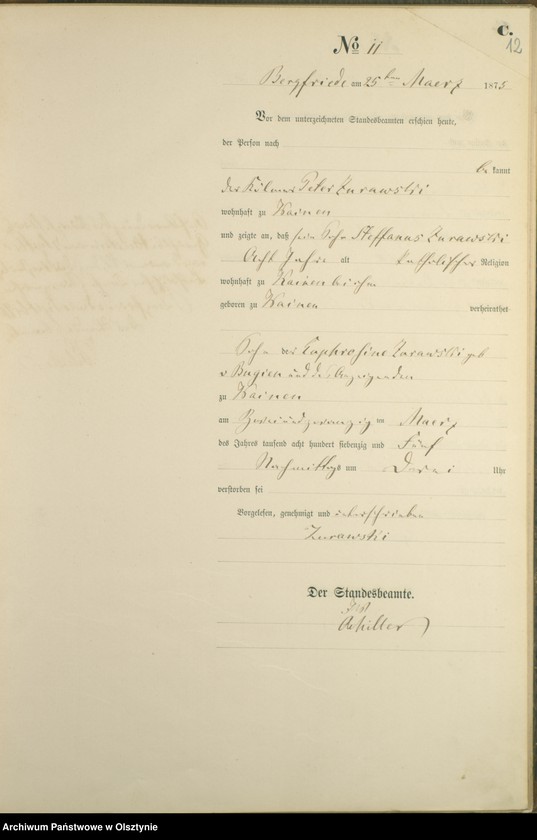 C.
12
No 11
Bergfriede am 25ten Maerz 1875
Vor dem unterzeichneten Standesbeamten erschien heute,
der Person nach
bekannt
der Peter Zurawski
wohnhaft zu Kainen
und zeigte an, daß sein Sohn Steffanus Zurawski
Acht Jahre alt katholischer Religion
wohnhaft zu Kainen
geboren zu Kainen verheirathet
Sohn der Euphrosine Zurawski geb
v und des Anzeigenden
zu Kainen
am Zweiundzwanzig ten Maerz
des Jahres tausend acht hundert siebenzig und Fünf
Nachmittags um Drei Uhr
verstorben sei
Vorgelesen, genehmigt und unterschrieben
Zurawski
Der Standesbeamte.
Archiwum Państwowe w Olsztynie